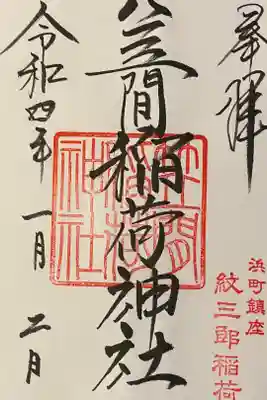 奉拝
浜町鎮座
紋三郎稲荷
笠間稲荷神社
笠間稲荷神社
令和四年 一月 二日